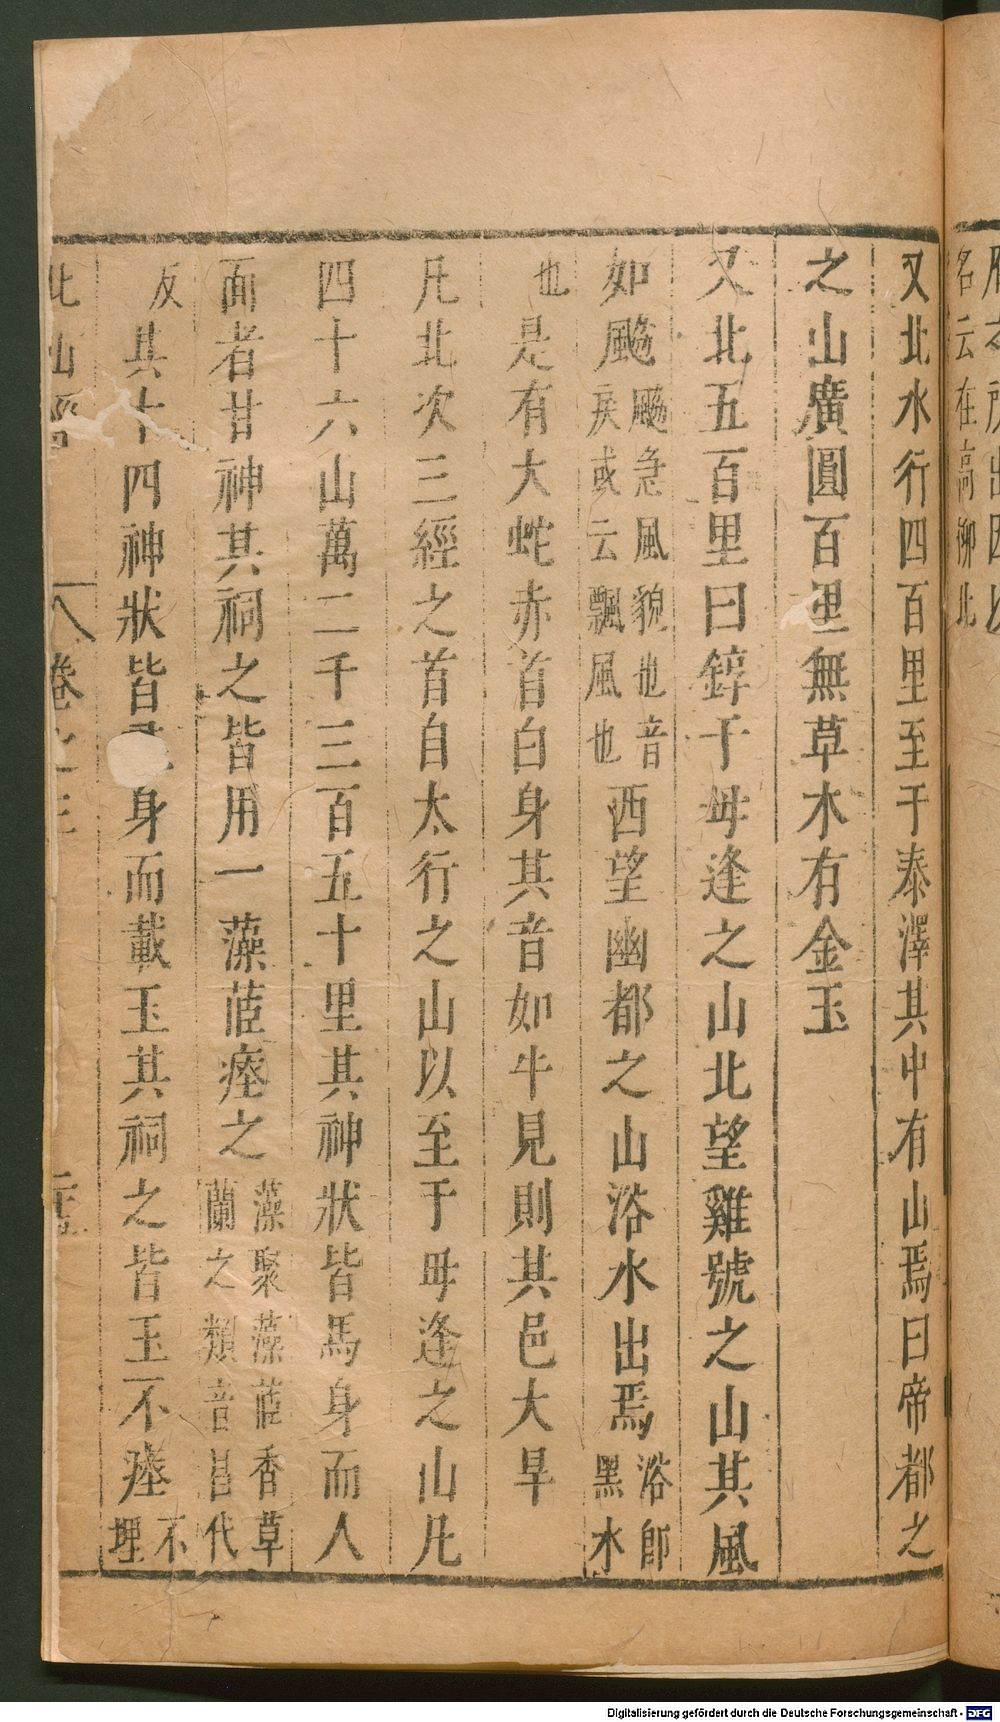 又北水行四百里至于泰澤其中有山焉曰帝都之
之山廣圓百里無草木有金玉
又北五百里曰錞于毋逢之山北望雞號之山其風
如飈飈急風貌也音戾或云飄風也西望幽都之山浴水出焉浴即黑水
也是有大蛇赤首白身其音如牛見則其邑大旱
凡北次三經之首自太行之山以至于毋逢之山凡
四十六山萬二千三百五十里其神狀皆馬身而人
面者廿神其祠之皆用一藻茝瘞之藻聚藻茝香草蘭之類音昌代
反其十四神狀皆身而載玉其祠之皆玉不瘞不埋
北山經 卷之三
名云在高柳北
Digitalisierung gefördert durch die Deutsche Forschungsgemeinschaft - DFG